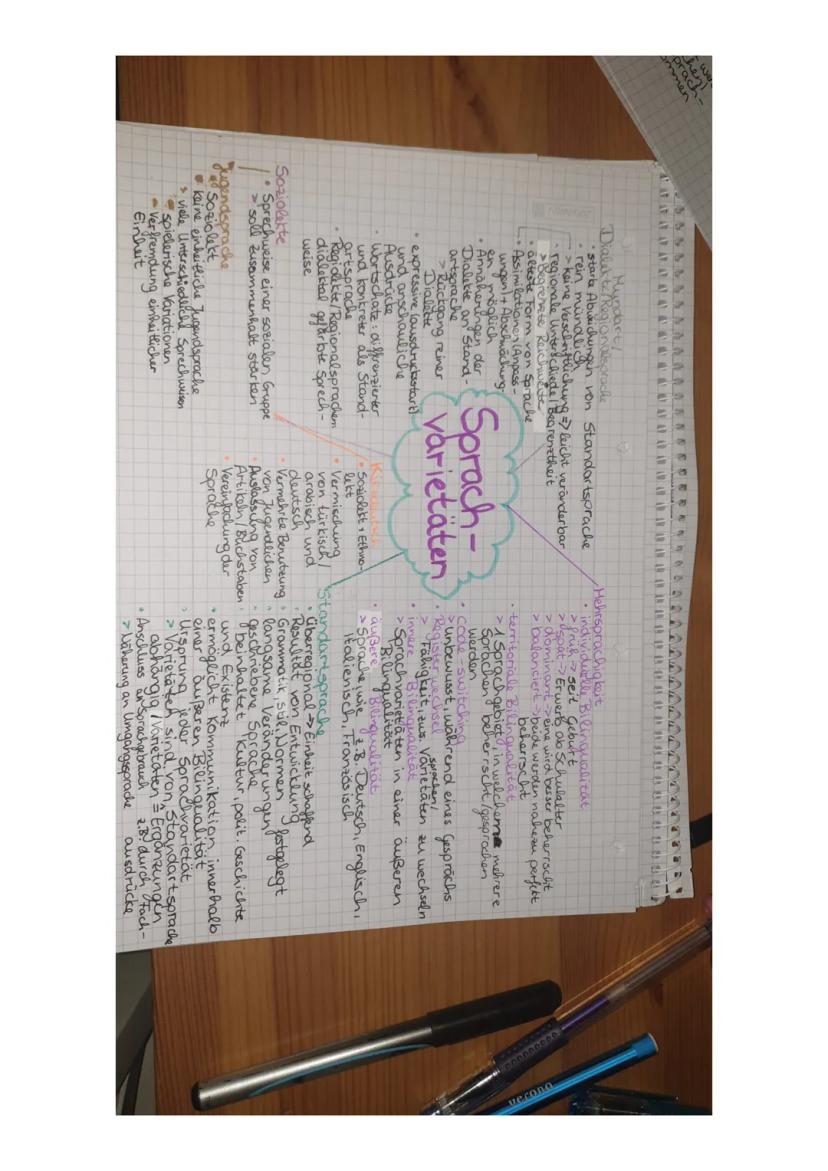 Sprach-
varietäten
Mundart/
Dialekte/Regionalsprache
• starke Abweichungen von Standartsprache
• rein mündlich
> keine Verschriftlichung => leicht veränderbar
• regionale Unterschiede/Begrenztheit
> begrenzte Reichweite
• älteste Form von Sprache
• Assimilationen (Anpass-
ungen) + Abschwächung-
en möglich
• Annäherungen der
Dialekte an Stand-
artsprache
> Rückgang reiner
Dialekte
• expressive (ausdrucksstark)
und anschauliche
Ausdrücke
• Wortschatz: differenzierter
und konkreter als Stand-
artsprache
• Regiolekte/Regionalsprachen
dialektal gefärbte Sprech-
weise
Soziolekte
• Sprechweise einer sozialen Gruppe
> soll Zusammenhalt stärken
Jugendsprache
• Soziolekt
• keine einheitliche Jugendsprache
> viele unterschiedliche Sprechweisen
• spielerische Variationen
• Verfremdung einheitlicher
Einheit
Kiezdeutsch
• Soziolekt + Ethno-
lekt
• Vermischung
von türkisch/
arabisch und
deutsch
• Vermehrte Benutzung
von Jugendlichen
• Auslassung von
Artikeln/Buchstaben
• Vereinfachung der
Sprache
Mehrsprachigkeit
• individuelle Bilingualität
> früh -> seit Geburt
> spät -> Erwerb ab Schulalter
> dominant -> eine wird besser beherrscht
> balanciert -> beide werden nahezu perfekt
beherrscht
• territoriale Bilingualität
> 1 Sprachgebiet, in welchem mehrere
Sprachen beherrscht/gesprochen
werden
• code-switching
unbewusst während eines Gesprächs
• Registerwechsel
> Fähigkeit, zws. Sprachen/Varietäten zu wechseln
• innere Bilingualität
> Sprachvarietäten in einer äußeren
Bilingualität
• äußere Bilingualität
> Sprache, wie z.B. Deutsch, Englisch,
Italienisch, Französisch
Standartsprache
• überregional => Einheit schaffend
• Resultat von Entwicklung
• Grammatik, Stil, Normen festgelegt
• langsame Veränderungen
• geschriebene Sprache
• beinhaltet Kultur, polit. Geschichte
und Existenz
• ermöglicht Kommunikation innerhalb
einer äußeren Bilingualität
• Ursprung jeder Sprachvarietät
> Varietäten sind von Standartsprache
abhängig/Varietäten ≙ Ergänzungen
• Anschluss an Sprachgebrauch z.B. durch Fach-
ausdrücke
> Näherung an Umgangssprache
verono